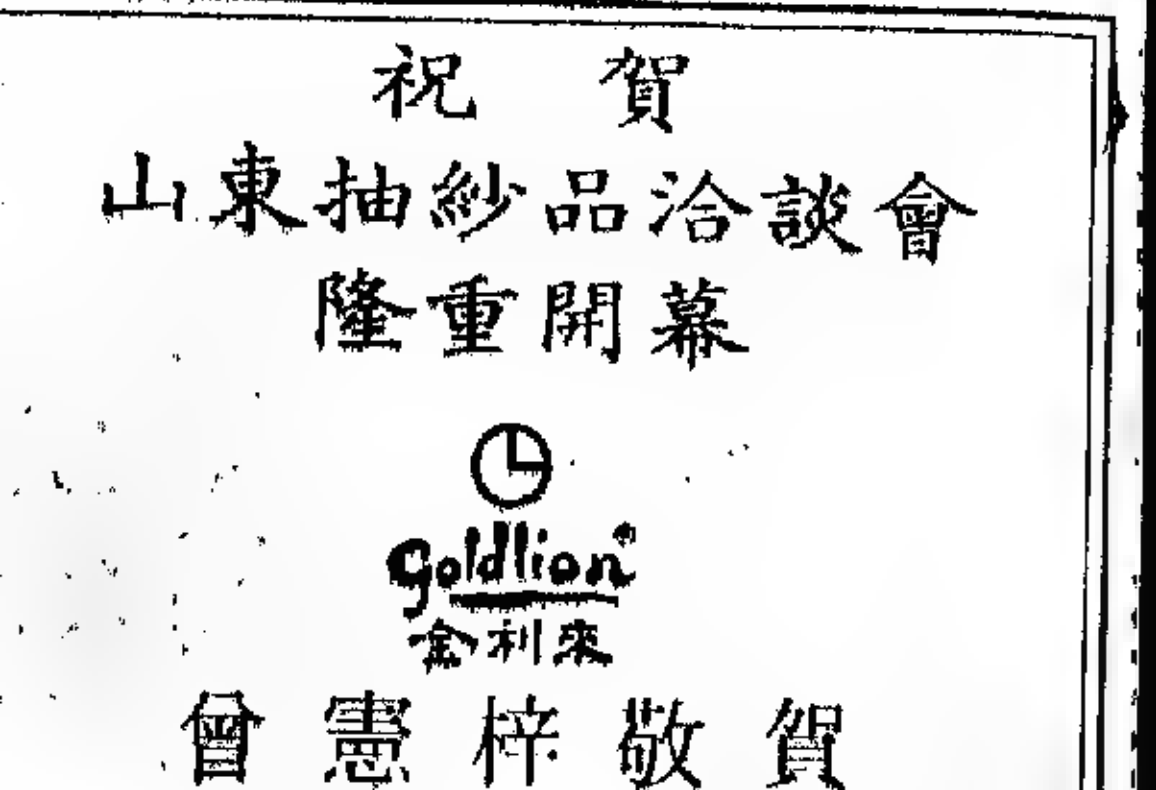 祝賀
山東抽紗品洽談會
隆重開幕
goldlion®
金利來
曾憲梓敬賀